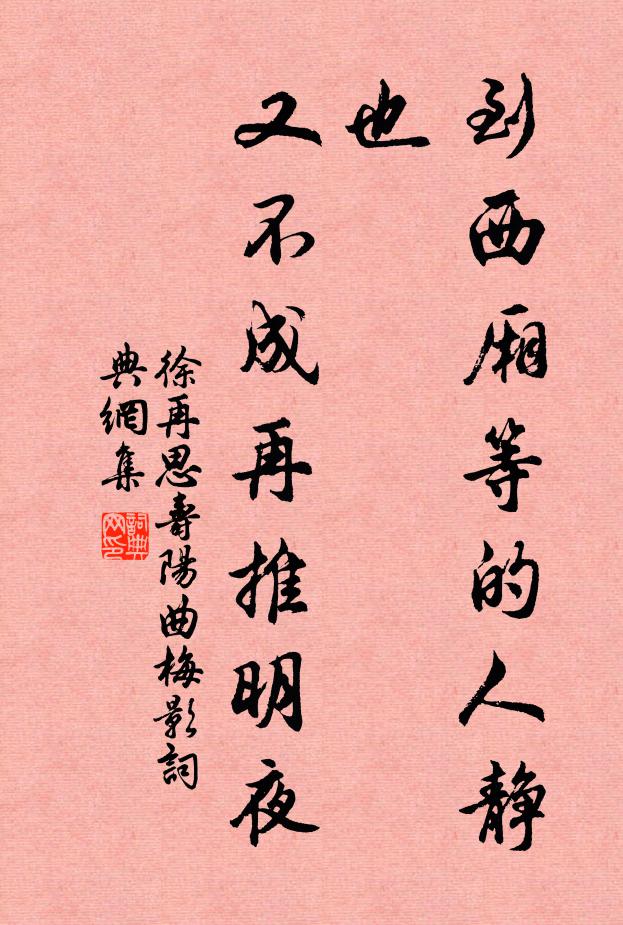 到西厢等的人静
也
又不成再推明夜
徐再思壽陽曲梅影詞
典網集
詞典
网印